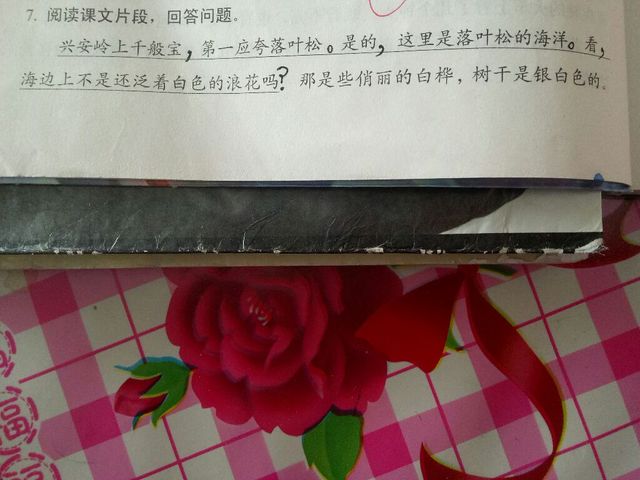 7. 阅读课文片段，回答问题。
兴安岭上千般宝，第一应夸落叶松。是的，这里是落叶松的海洋。看，
海边上不是还泛着白色的浪花吗？那是些俏丽的白桦，树干是银白色的。
福